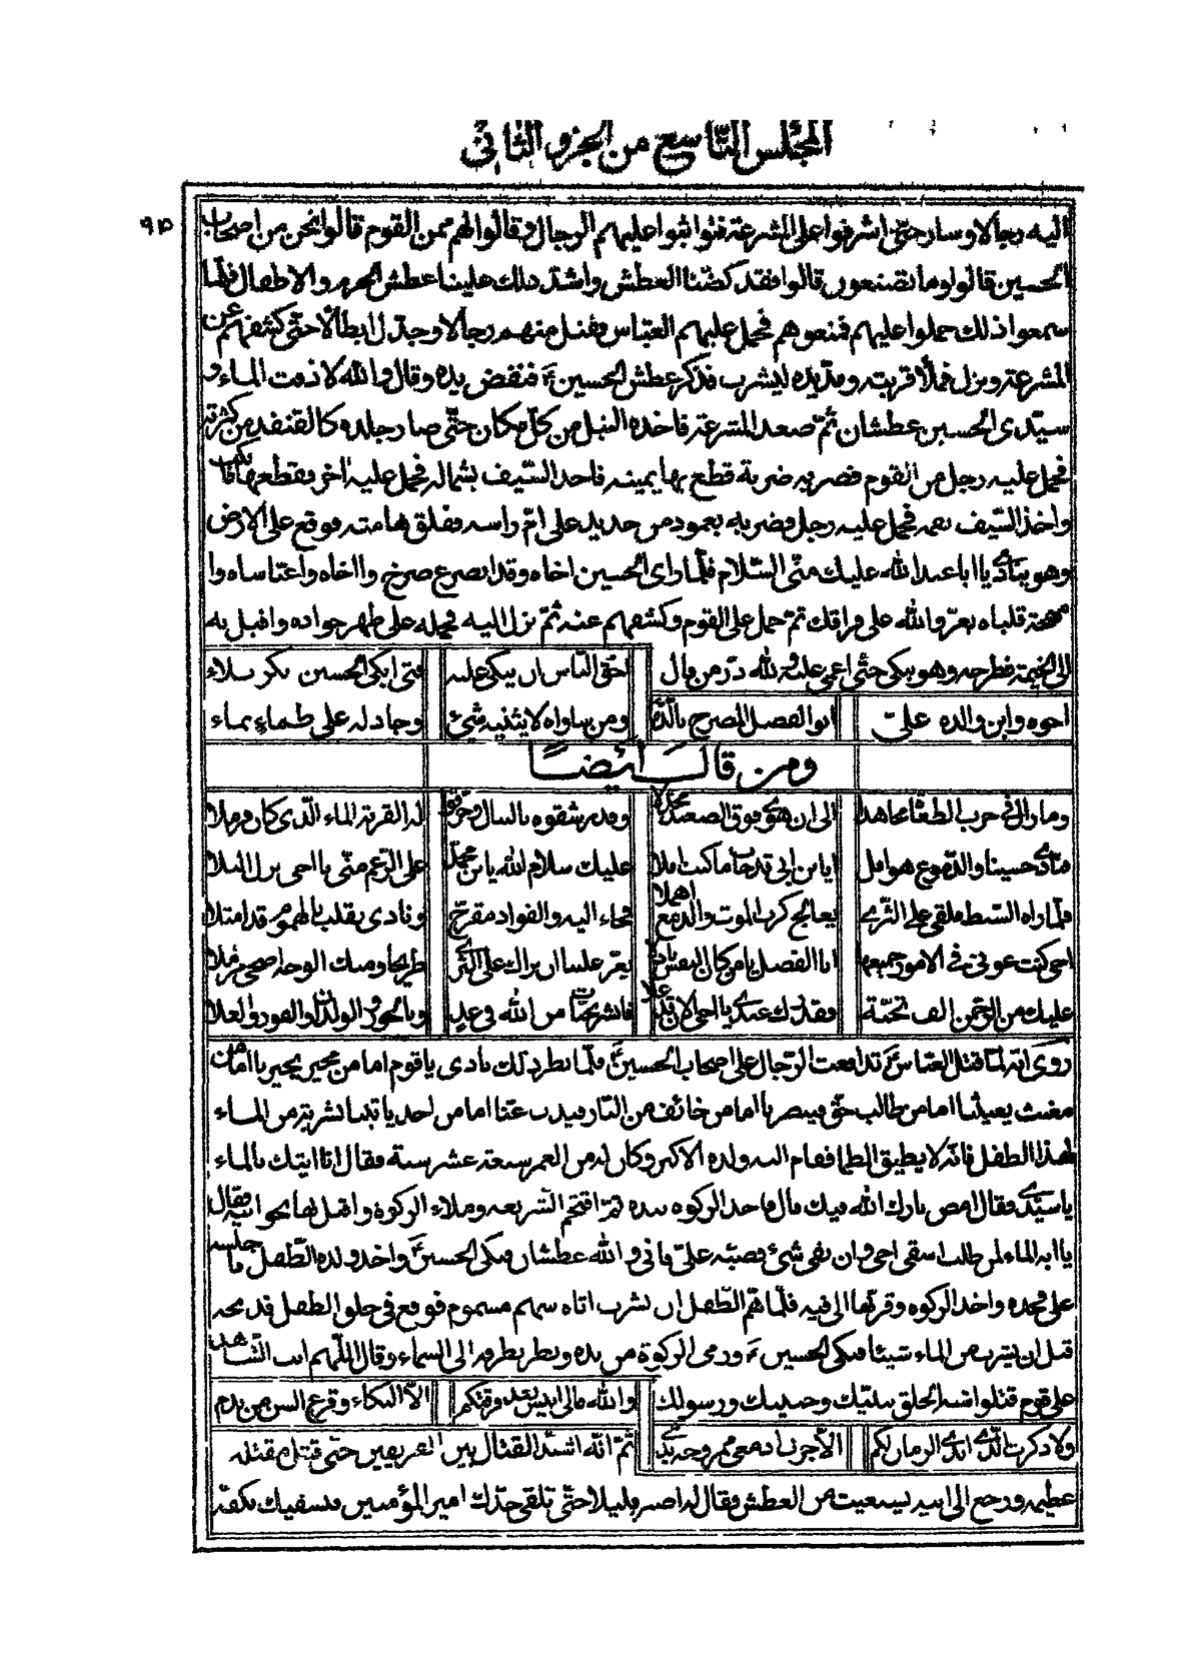 المجلس التاسع من الجزو الثانی
٩٥
اليه رجالا وسار حتى اشرفوا على المشرعة فتواثبوا عليهم الرجال وقالوا لهم ممن القوم قالوا نحن من اصحاب
الحسين قالو وما تصنعون قالوا فقد كضنا العطش واشد ذلك علينا عطش الحرم والاطفال فلما
سمعوا ذلك حملوا عليهم فمنعوهم فحمل عليهم العباس فقتل منهم رجالا وجدل ابطالا حتى كشفهم عن
المشرعة ونزل فملا قربته ومد يده ليشرب فذكر عطش الحسين ع فنفض يده وقال والله لا ذقت الماء و
سيدى الحسين عطشان ثم صعد المشرعة فاخذه النبل من كل مكان حتى صار جلده كالقنفد من كثرته
فحمل عليه رجل من القوم فضربه ضربة قطع بها يمينه فاخذ السيف بشماله فحمل عليه اخر فقطعها فانكب
واخذ السيف بفمه فحمل عليه رجل فضربه بعمود من حديد على ام راسه ففلق هامته فوقع على الارض
وهو ينادى يا ابا عبد الله عليك منى السلام فلما راى الحسين اخاه وقد انصرع صرخ وااخاه واعباساه وا
مهجة قلباه يعز والله على فراقك ثم حمل على القوم وكشفهم عنه ثم نزل اليه فحمله على ظهر جواده واقبل به
الى الخيمة فطرحه وهو يبكى حتى اغمى عليه ولله در من قال
احق الناس ان يبكى عليه فتى ابكى الحسين بكربلاء
اخوه وابن والده على ابو الفضل المضرج بالدماء ومن ساواه لا يثنيه شئ وجاد له على ظماء بماء
ومن قال ايضا
وما زال فى حرب الطغاة مجاهدا الى ان هوى فوق الصعيد مجدلا وقد رشقوه بالنبال وخرقوا له القربة الماء الذى كان قد ملا
فنادى حسينا والدموع هوامل ايابن ابى قد خاب ما كنت املا عليك سلام الله يابن محمد على الرغم منى يا اخى نزل البلا
فلما راه السبط ملقى على الثرى يعالج كرب الموت والدمع اهملا فجاء اليه والفواد مقرح ونادى بقلب بالهموم قد امتلا
اخى كنت عونى فى الامور جميعها ابا الفضل يا من كان للنفس باذلا يعز علينا ان نراك على الثرى طريحا ومنك الوجه اضحى مرملا
عليك من الرحمن الف تحية فقدرك عندى يا اخى الان قد علا فابشر بجنات من الله فى غد وبالحور والولدان والفوز والعلا
روى انه لما قتل العباس ع تدافعت الرجال على اصحاب الحسين ع فلما نظر ذلك نادى يا قوم اما من مجير يجيرنا اما من
مغيث يغيثنا اما من طالب حق فينصرنا اما من خائف من النار فيذب عنا اما من احد ياتينا بشربة من الماء
لهذا الطفل فانه لا يطيق الظما فقام اليه ولده الاكبر وكان له من العمر سبعة عشر سنة فقال انا اتيك بالماء
يا سيدى فقال امض بارك الله فيك قال فاخذ الركوة بيده ثم اقتحم الشريعة وملاء الركوة واقبل بها نحو ابيه فقال
يا ابه الماء لمن طلب اسقى اخى وان بقى شئ فصبه على فانى والله عطشان فبكى الحسين ع واخذ ولده الطفل فاجلسه
على فخذه واخذ الركوة وقربها الى فيه فلما هم الطفل ان يشرب اتاه سهم مسموم فوقع فى حلق الطفل فذبحه
قبل ان يشرب من الماء شيئا فبكى الحسين ع ورمى الركوة من يده ونظر بطرفه الى السماء وقال اللهم انت الشاهد
على قوم قتلوا اشبه الخلق بنبيك وحبيبك ورسولك
والله مالى انيس بعد فرقتكم الا البكاء وقرع السن من ندم
ولا ذكرت الذى ابدى الزمان لكم الا جرت ادمعى ممزوجة بدمى
ثم انه اشتد القتال بين الفريقين حتى قتل مقتله
عظيمه ورجع الى ابيه يستغيث من العطش فقال له اصبر قليلا حتى تلقى جدك امير المؤمنين فيسقيك بكفه